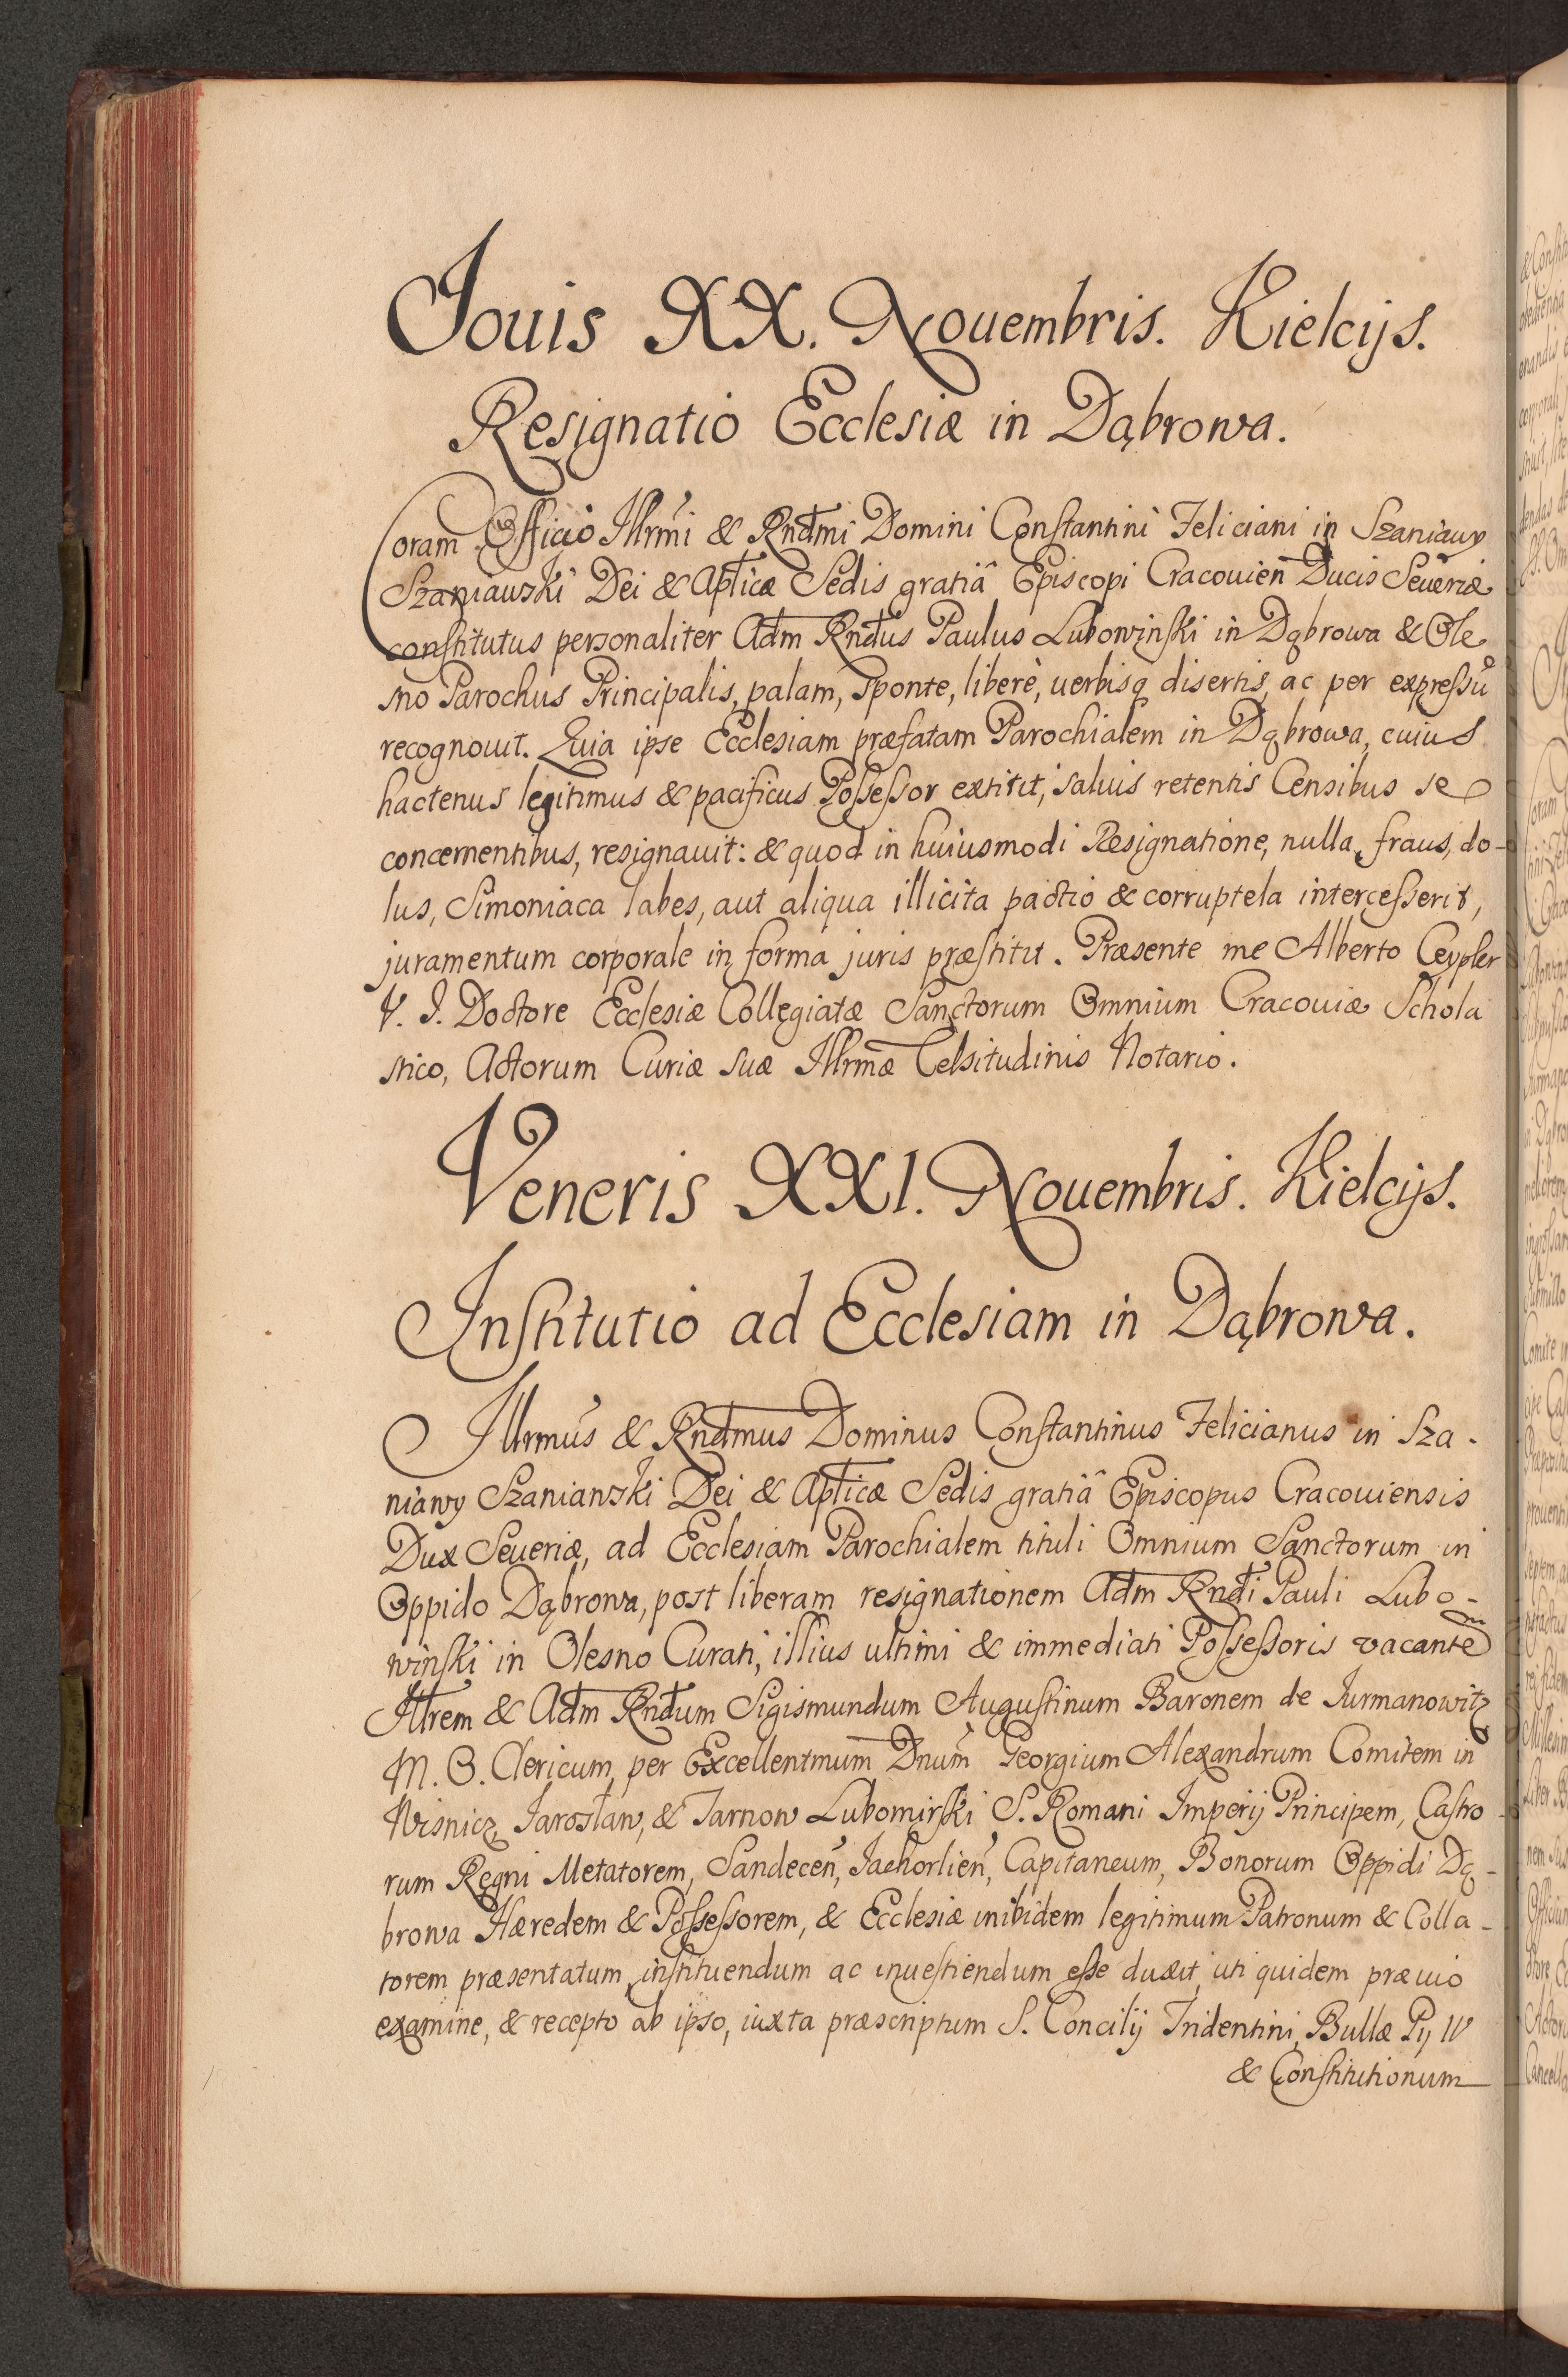 Jouis XX. Nouembris. Kielcijs.
Resignatio Ecclesiæ in Dąbrowa.
Coram Officio Illrmi & Rndmi Domini Constantini Feliciani in Szaniawy
Szaniawski Dei & Aplicæ Sedis gratiâ Episcopi Cracouien Ducis Seueriæ
constitutus personaliter Adm Rndus Paulus Lubowinski in Dąbrowa & Ole
sno Parochus Principalis, palam, sponte, liberè, uerbisq disertis, ac per expressũ
recognouit. Quia ipse Ecclesiam præfatam Parochialem in Dąbrowa, cuius
hactenus legitimus & pacificus Possessor extitit, saluis retentis Censibus se
concernentibus, resignauit: & quod in huiusmodi Resignatione, nulla fraus, do-
lus, Simoniaca labes, aut aliqua illicita pactio & corruptela intercesserit,
juramentum corporale in forma juris præstitit. Præsente me Alberto Ceypler
V. J. Doctore Ecclesiæ Collegiatæ Sanctorum Omnium Cracouiæ Schola
stico, Actorum Curiæ suæ Illrmæ Celsitudinis Notario.
Veneris XXI. Nouembris. Kielcijs.
Institutio ad Ecclesiam in Dąbrowa.
Illrmus & Rndmus Dominus Constantinus Felicianus in Sza-
niawy Szaniawski Dei & Aplicæ Sedis gratiâ Episcopus Cracouiensis
Dux Seueriæ, ad Ecclesiam Parochialem tituli Omnium Sanctorum in
Oppido Dąbrowa, post liberam resignationem Adm Rndi Pauli Lubo-
winski in Olesno Curati, illius ultimi & immediati Possessoris vacantem
Illrem & Adm Rndum Sigismundum Augustinum Baronem de Jurmanowitz
M. O. Clericum, per Excellentmum Dnum Georgium Alexandrum Comitem in
Wisnicz, Jarosław, & Tarnow Lubomirski S. Romani Imperij Principem, Castro-
rum Regni Metatorem, Sandecen, Jachorlien, Capitaneum, Bonorum Oppidi Dą-
browa Hæredem & Possessorem, & Ecclesiæ inibidem legitimum Patronum & Colla-
torem præsentatum, instituendum ac inuestiendum esse duxit, uti quidem præuio
examine, & recepto ab ipso, iuxta præscriptum S. Concilij Tridentini, Bullæ Pij IV
& Constitutionum